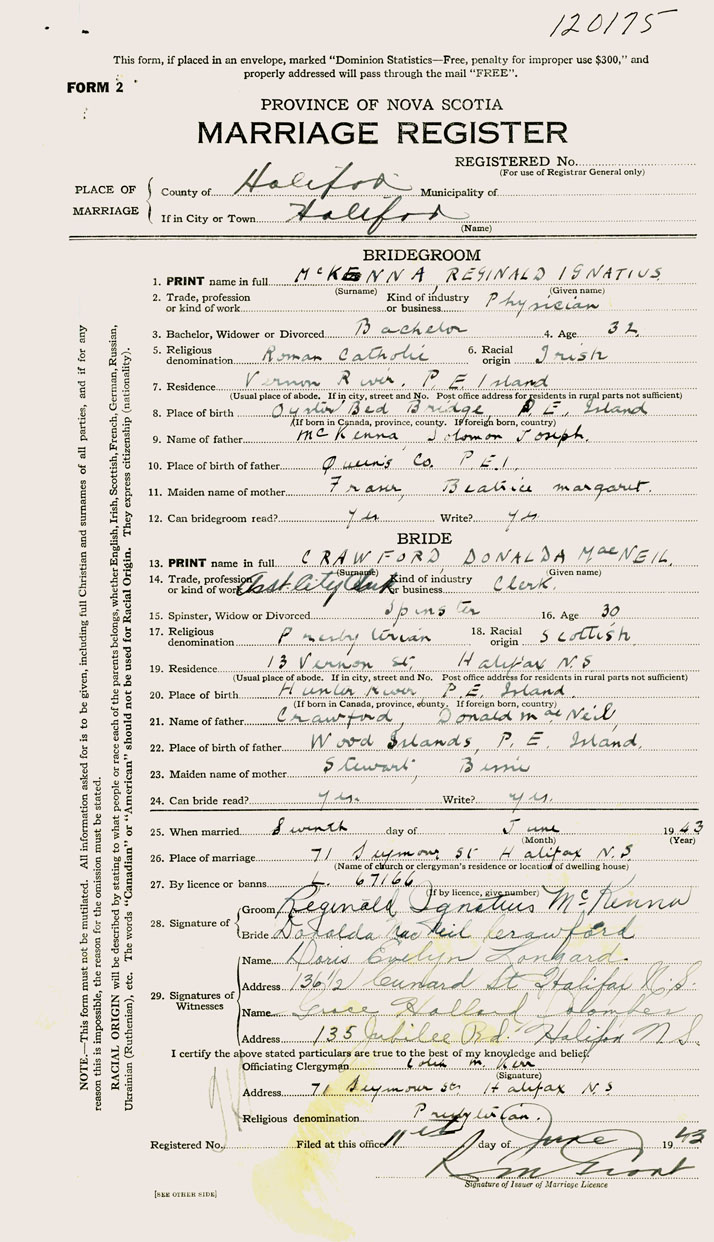 120175
This form, if placed in an envelope, marked "Dominion Statistics—Free, penalty for improper use $300," and
properly addressed will pass through the mail "FREE".
FORM 2
PROVINCE OF NOVA SCOTIA
MARRIAGE REGISTER
REGISTERED No.
(For use of Registrar General only)
PLACE OF MARRIAGE
County of Halifax Municipality of
If in City or Town Halifax
(Name)
BRIDEGROOM
1. PRINT name in full McKENNA, REGINALD IGNATIUS
(Surname) (Given name)
2. Trade, profession or kind of work Kind of industry or business Physician
3. Bachelor, Widower or Divorced Bachelor 4. Age 32
5. Religious denomination Roman Catholic 6. Racial origin Irish
7. Residence Vernon River, P. E. Island
(Usual place of abode. If in city, street and No. Post office address for residents in rural parts not sufficient)
8. Place of birth Oyster Bed Bridge, P. E. Island
(If born in Canada, province, county. If foreign born, country)
9. Name of father McKenna, Solomon Joseph.
10. Place of birth of father Queens Co. P.E.I.
11. Maiden name of mother Fraser, Beatrice Margaret.
12. Can bridegroom read? yes Write? yes
BRIDE
13. PRINT name in full CRAWFORD DONALDA MacNEIL
(Surname) (Given name)
14. Trade, profession or kind of work Asst City Clerk Kind of industry or business Clerk.
15. Spinster, Widow or Divorced Spinster 16. Age 30
17. Religious denomination Presbyterian 18. Racial origin Scottish
19. Residence 13 Vernon St. Halifax N.S
(Usual place of abode. If in city, street and No. Post office address for residents in rural parts not sufficient)
20. Place of birth Hunter River, P. E. Island.
(If born in Canada, province, county. If foreign born, country)
21. Name of father Crawford, Donald MacNeil
22. Place of birth of father Wood Islands, P. E. Island.
23. Maiden name of mother Stewart, Bessie
24. Can bride read? yes. Write? yes.
25. When married Seventh day of June 1943
(Month) (Year)
26. Place of marriage 71 Seymour St Halifax N.S.
(Name of church or clergyman's residence or location of dwelling house)
27. By licence or banns L. 67166
(If by licence, give number)
28. Signature of
Groom Reginald Ignatius McKenna
Bride Donalda MacNeil Crawford
29. Signatures of Witnesses
Name Doris Evelyn Longard.
Address 136½ Cunard St Halifax N.S.
Name Grace Holland
Address 135 Jubilee Rd. Halifax N.S.
I certify the above stated particulars are true to the best of my knowledge and belief.
Officiating Clergyman Colin M. Kerr
(Signature)
Address 71 Seymour St. Halifax N.S
Religious denomination Presbyterian.
Registered No. Filed at this office 11th day of June 1943
Grant
Signature of Issuer of Marriage Licence
[SEE OTHER SIDE]
NOTE.—This form must not be mutilated. All information asked for is to be given, including full Christian and surnames of all parties, and if for any
reason this is impossible, the reason for the omission must be stated.
RACIAL ORIGIN will be described by stating to what people or race each of the parents belongs, whether English, Irish, Scottish, French, German, Russian,
Ukrainian (Ruthenian), etc. The words "Canadian" or "American" should not be used for Racial Origin. They express citizenship (nationality).